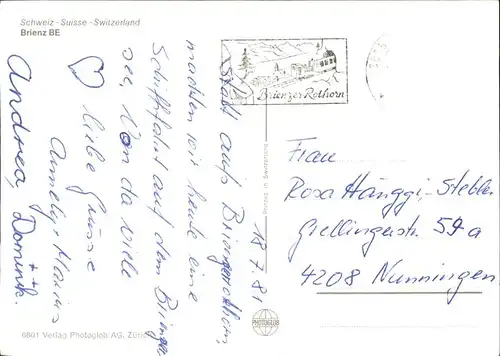 Schweiz - Suisse - Switzerland
Brienz BE
Brienzer Rothorn
18.7.81
Statt aufs Brienzerrothorn,
machten wir heute eine
Schifffahrt auf dem Brienzer-
see. Von da viele
liebe Grüsse
Andrea, Dominik.
Frau
Rosa Hänggi-Stebler
Grellingerstr. 59a
4208 Nunningen
Printed in Switzerland
PHOTOGLOB
6801 Verlag Photoglob AG, Zürich